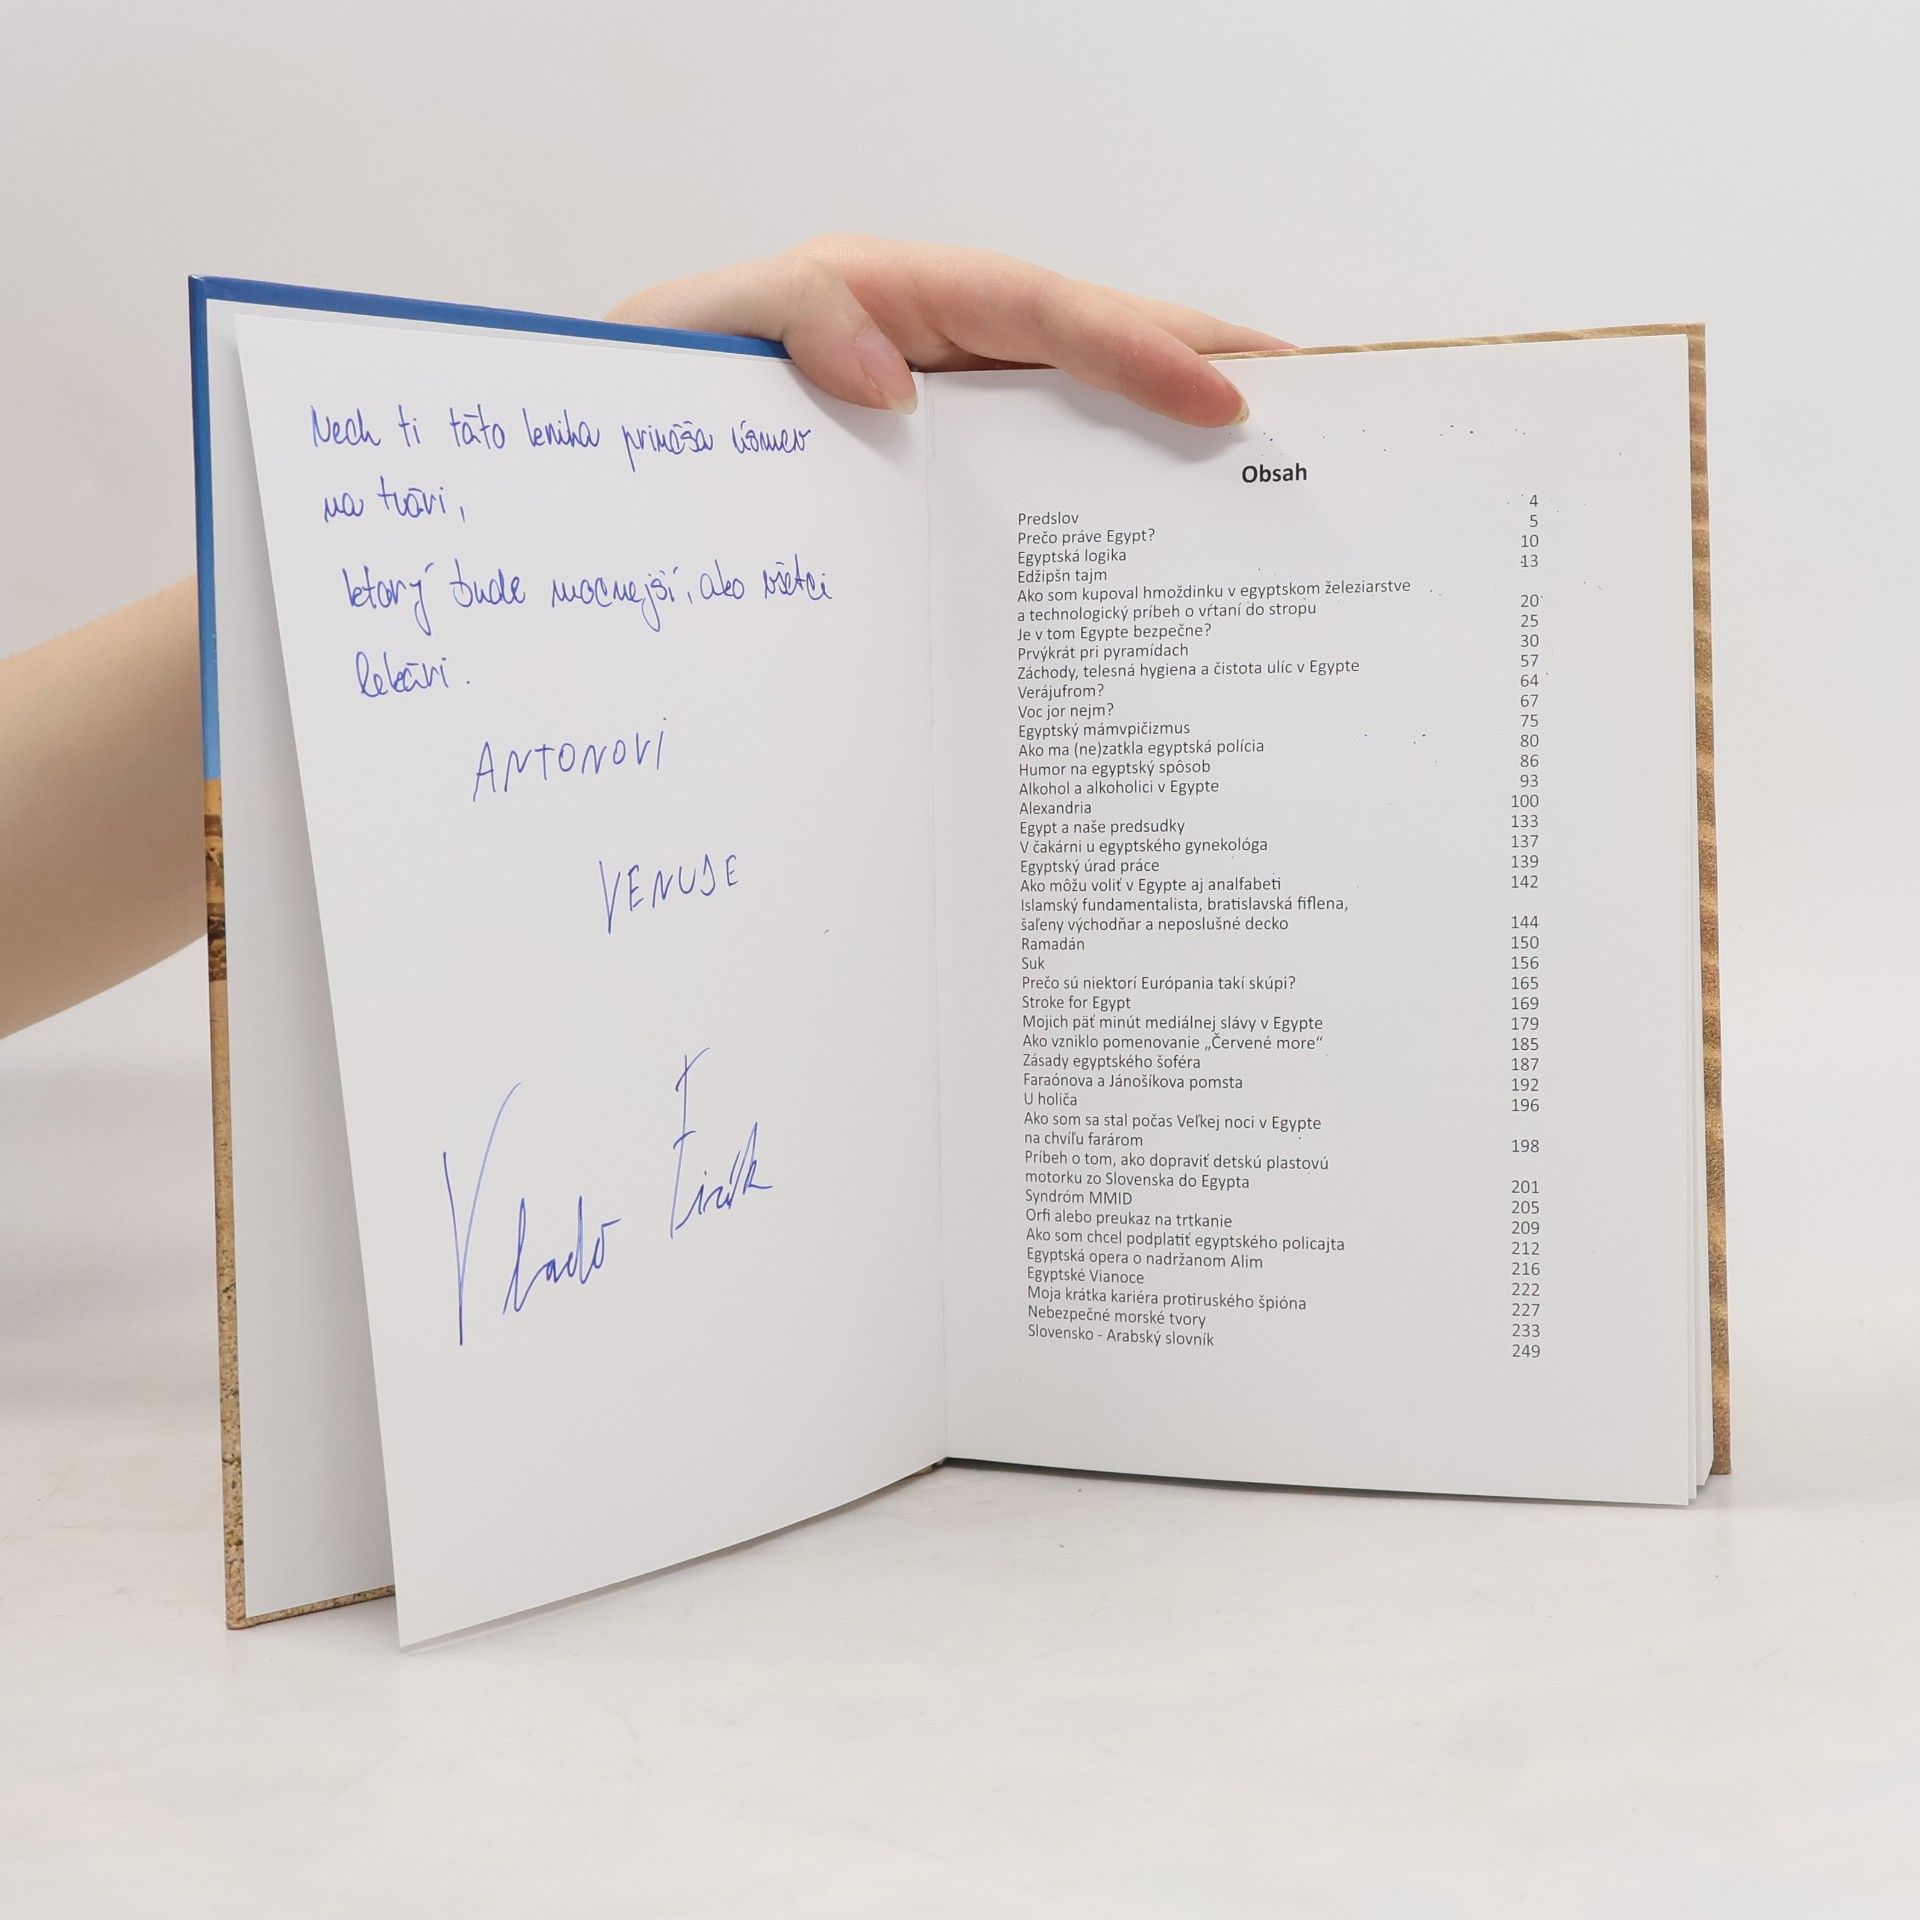 Nech ti táto kniha prináša úsmev
na tvári,
ktorý bude mocnejší, ako všetci
lekári.
ANTONOVI
VENUJE
Vlado
Obsah
Predslov 4
Prečo práve Egypt? 5
Egyptská logika 10
Edžipšn tajm 13
Ako som kupoval hmoždinku v egyptskom železiarstve
a technologický príbeh o vŕtaní do stropu 20
Je v tom Egypte bezpečne? 25
Prvýkrát pri pyramídach 30
Záchody, telesná hygiena a čistota ulíc v Egypte 57
Verájufrom? 64
Voc jor nejm? 67
Egyptský mámvpičizmus 75
Ako ma (ne)zatkla egyptská polícia 80
Humor na egyptský spôsob 86
Alkohol a alkoholici v Egypte 93
Alexandria 100
Egypt a naše predsudky 133
V čakárni u egyptského gynekológa 137
Egyptský úrad práce 139
Ako môžu voliť v Egypte aj analfabeti 142
Islamský fundamentalista, bratislavská fiflena,
šaľeny východňar a neposlušné decko 144
Ramadán 150
Suk 156
Prečo sú niektorí Európania takí skúpi? 165
Stroke for Egypt 169
Mojich päť minút mediálnej slávy v Egypte 179
Ako vzniklo pomenovanie „Červené more“ 185
Zásady egyptského šoféra 187
Faraónova a Jánošíkova pomsta 192
U holiča 196
Ako som sa stal počas Veľkej noci v Egypte
na chvíľu farárom 198
Príbeh o tom, ako dopraviť detskú plastovú
motorku zo Slovenska do Egypta 201
Syndróm MMID 205
Orfi alebo preukaz na trtkanie 209
Ako som chcel podplatiť egyptského policajta 212
Egyptská opera o nadržanom Alim 216
Egyptské Vianoce 222
Moja krátka kariéra protiruského špióna 227
Nebezpečné morské tvory 233
Slovensko - Arabský slovník 249